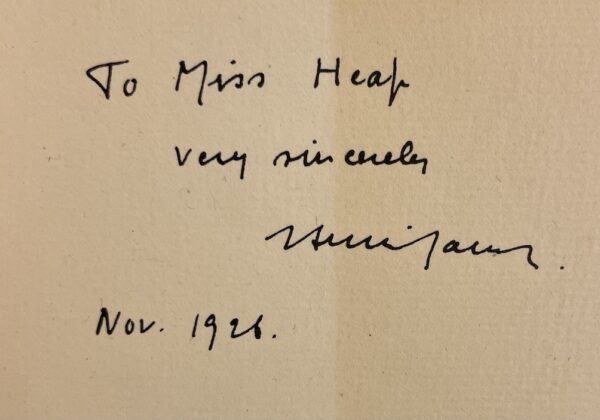 To Miss Heap
very sincerely
Nov. 1926.